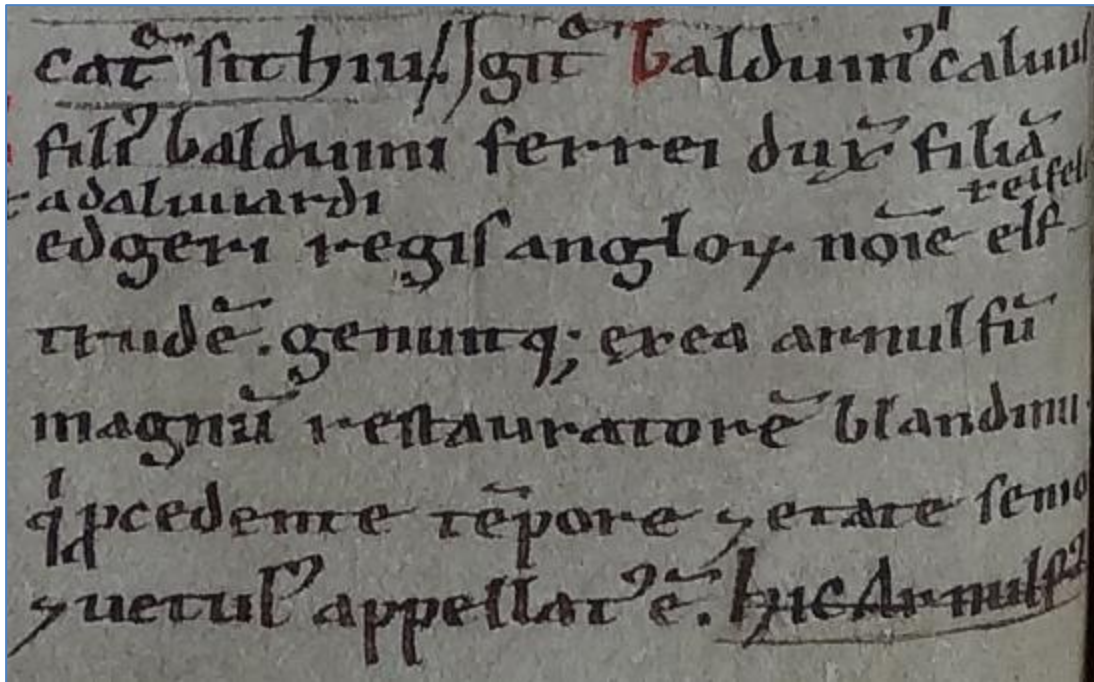 cat̄ sithiu. Igit̄ balduin⁹ caluus
fili⁹ balduini ferrei dux̄ filiā
adaluuardi reifel
edgeri regis angloꝝ noīe elf-
trudē. genuitq; ex ea arnulfū
magnū restauratorē blandinii
q¹ p̱cedente tēpore ⁊ etate senio
⁊ uetul⁹ appellat⁹ ē. hic Arnulf⁹